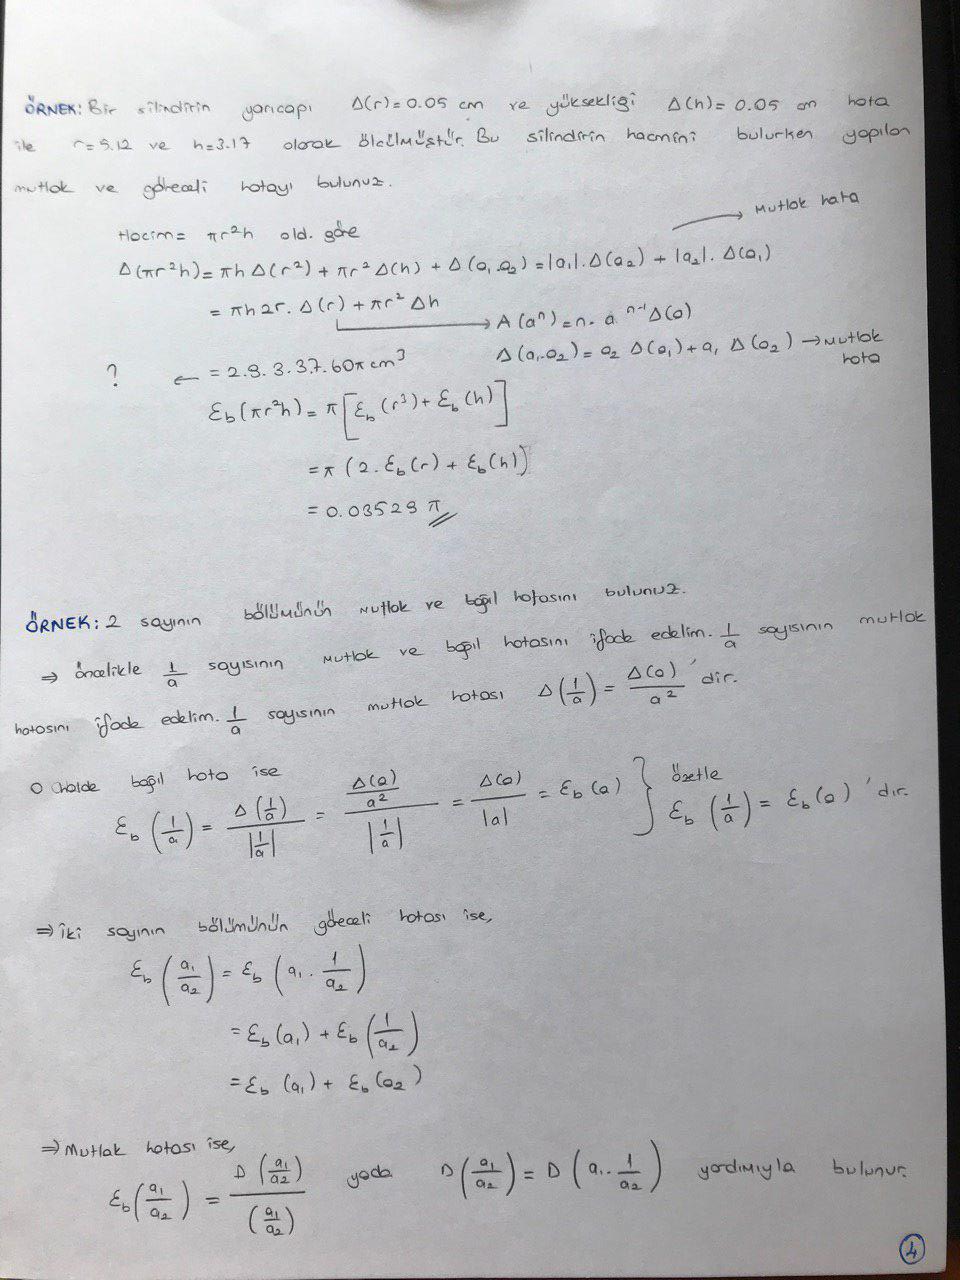 ÖRNEK: Bir silindirin yarıçapı Δ(r)=0.05 cm ve yüksekliği Δ(h)=0.05 cm hata
ile r=9.12 ve h=3.17 olarak ölçülmüştür. Bu silindirin hacmini bulurken yapılan
mutlak ve göreceli hatayı bulunuz.
Hacim= πr²h old. göre
→ Mutlak hata
Δ(πr²h)=πhΔ(r²)+πr²Δ(h)+Δ(a₁.a₂)=|a₁|.Δ(a₂)+|a₂|.Δ(a₁)
=πh2r.Δ(r)+πr²Δh
→ A(aⁿ)=n.aⁿ⁻¹Δ(a)
Δ(a₁.a₂)=a₂Δ(a₁)+a₁Δ(a₂) → Mutlak hata
? ← =2.9.3.37.60π cm³
Ɛb(πr²h)=π[Ɛb(r³)+Ɛb(h)]
=π(2.Ɛb(r)+Ɛb(h)]
=0.03529 π
ÖRNEK: 2 sayının bölümünün mutlak ve bağıl hatasını bulunuz.
⇒ öncelikle 1/a sayısının mutlak ve bağıl hatasını ifade edelim. 1/a sayısının mutlak
hatasını ifade edelim. 1/a sayısının mutlak hatası Δ(1/a)=Δ(a)/a² 'dir.
O halde bağıl hata ise
Ɛb(1/a)=Δ(1/a)/|1/a|=(Δ(a)/a²)/|1/a|=Δ(a)/|a|=Ɛb(a) } özetle Ɛb(1/a)=Ɛb(a) 'dır.
⇒ İki sayının bölümünün göreceli hatası ise,
Ɛb(a₁/a₂)=Ɛb(a₁.1/a₂)
=Ɛb(a₁)+Ɛb(1/a₂)
=Ɛb(a₁)+Ɛb(a₂)
⇒ Mutlak hatası ise,
Ɛb(a₁/a₂)=D(a₁/a₂)/(a₁/a₂) yada D(a₁/a₂)=D(a₁.1/a₂) yardımıyla bulunur.
4